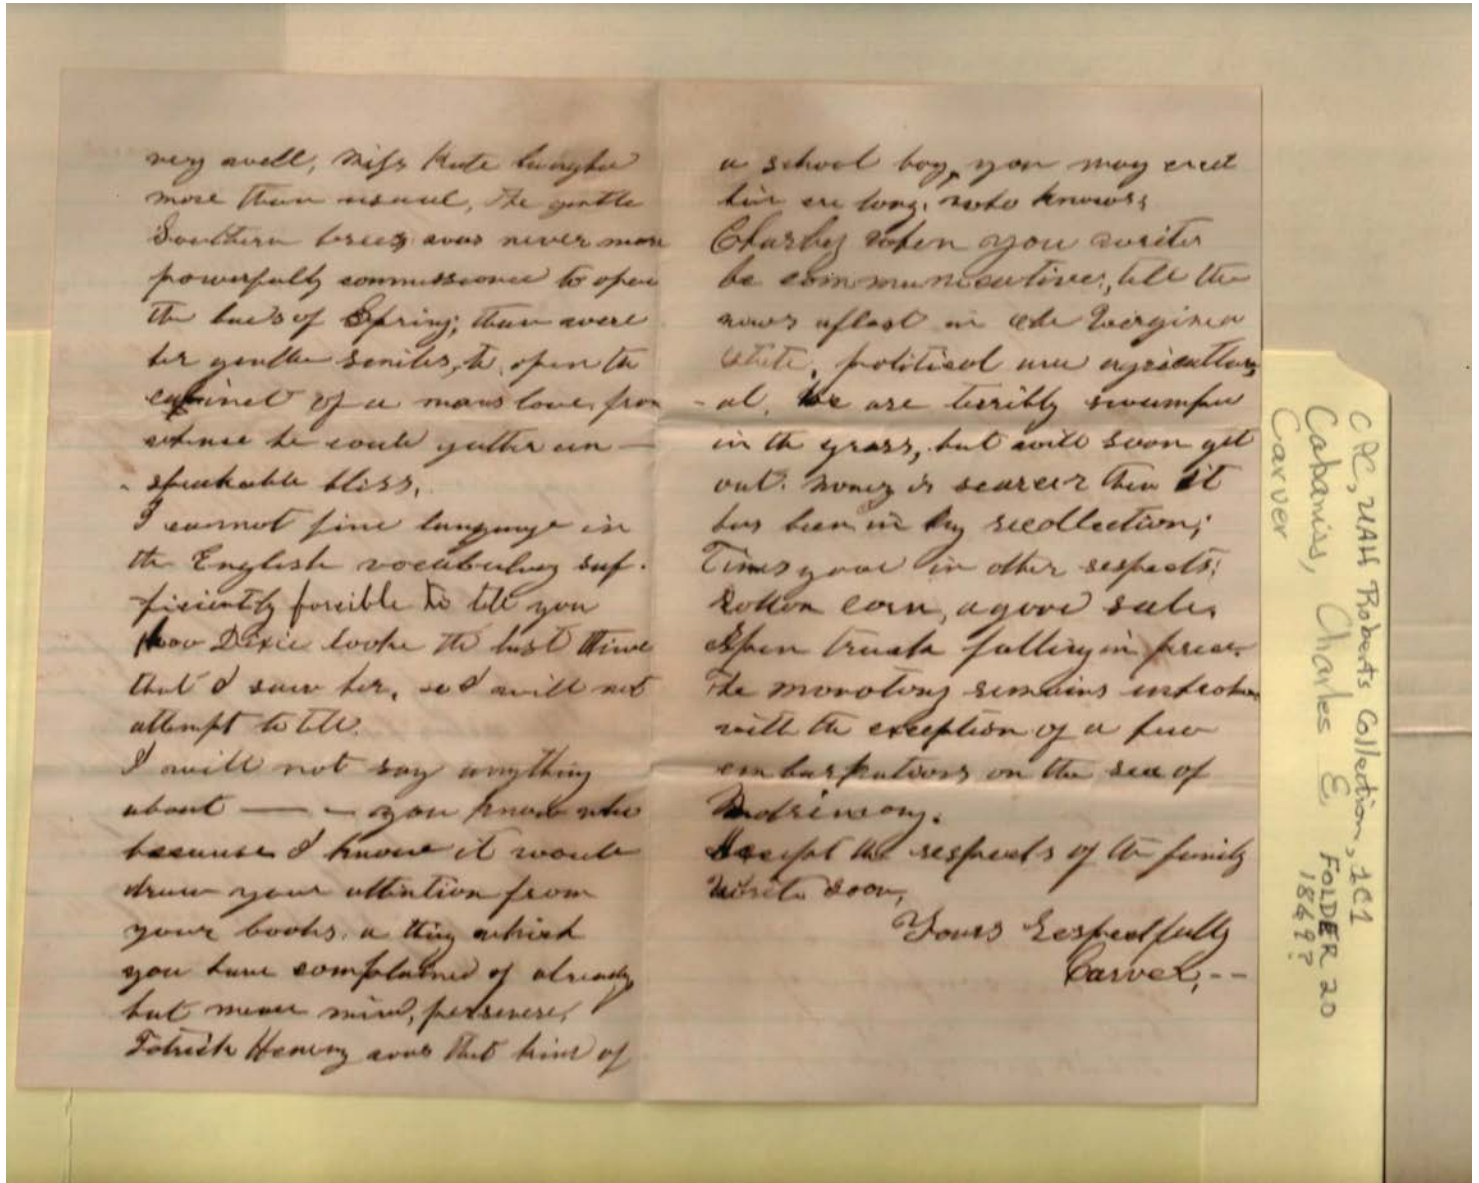 very well, Miss Kate laughed
more than usual, the gentle
Southern breez was never more
powerfully commissioned to open
the buds of Spring; than were
her gentle smiles, to open the
cabinet of a mans love, from
whence he could gather un-
-speakable bliss.
I cannot find language in
the English vocabulary suf-
ficiently forcible to tell you
how Dixie looke the last time
that I saw her, so I will not
attempt to tell.
I will not say anything
about — — you know who
because I know it would
draw your attention from
your books, a thing which
you have complained of already
but never mind, persevere,
Patrick Henry was that kind of
a school boy, you may
him ere long, who knows;
Charley when you write
be communicative, tell the
news afloat in the Virginia
State, political and agricultur
-al. We are terribly swamped
in the grass, but will soon get
out. Money is scarcer than it
has been in my recollection;
Times good in other respects;
Rotton corn, a good sale,
truck falling in price.
The monotony remains unbroken
with the exception of a few
embarkations on the sea of
Matrimony.
Accept the respects of the family
Write soon,
Yours Respectfully
Carver, --
CPC, UAH Roberts Collection, 1C1
Cabaniss, Charles E. FOLDER 20
Carver 1869?